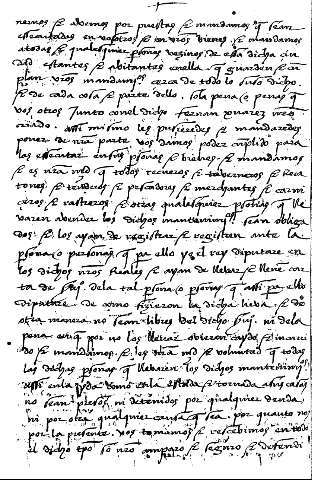 nemos se abemos por puestas se mandamos q sean
esecutadas en vosotros se en vros bienes se mandamos
a todas se qualesquier psonas vezinos de esta dicha ciu
dad estantes se abitantes en ella q guarden se cu
plan vros mandamyos cerca de todo lo suso dicho
se de cada cosa se parte dello sola pena o penas q
vos otros Junto con el dicho fernan xuarez nro
criado assi mismo les pusieredes se mandaredes
poner de nra parte vos damos poder cuplido para
las esecutar en sus psonas se bienes se mandamos
se es nra md q todos recueros se taverneros se
tones se tenderos se pescadores se merchantes se carni
ceros se rastreros se otras qualesquier psonas q lle
varen a vender los dichos mantenimyos sean obliga
dos se los ayan de registrar se registren ante la
psona o personas q pa ello yo el rey diputare en
los dichos nros Reales se ayan de llebar se lleve car
ta de de la tal psona o psonas q assi pa ello
diputare de como fizieron la dicha lieba se de
otra manera no sean libres del dicho ni de la
pena avnq por no los llebar obieren caydo se incurri
do se mandamos se es nra md se voluntad q todas
las dichas psonas q llebaren los dichos mantenimyos
assi en la yda como en la estada se tornada a sus casas
no sean presos ni detenidos por qualquier debda
ni por otra qualquier causa q sea por quanto nos
por la presente vos tomamos se rescebimos en todo
el dicho tpo so nro amparo se seguro se defendi